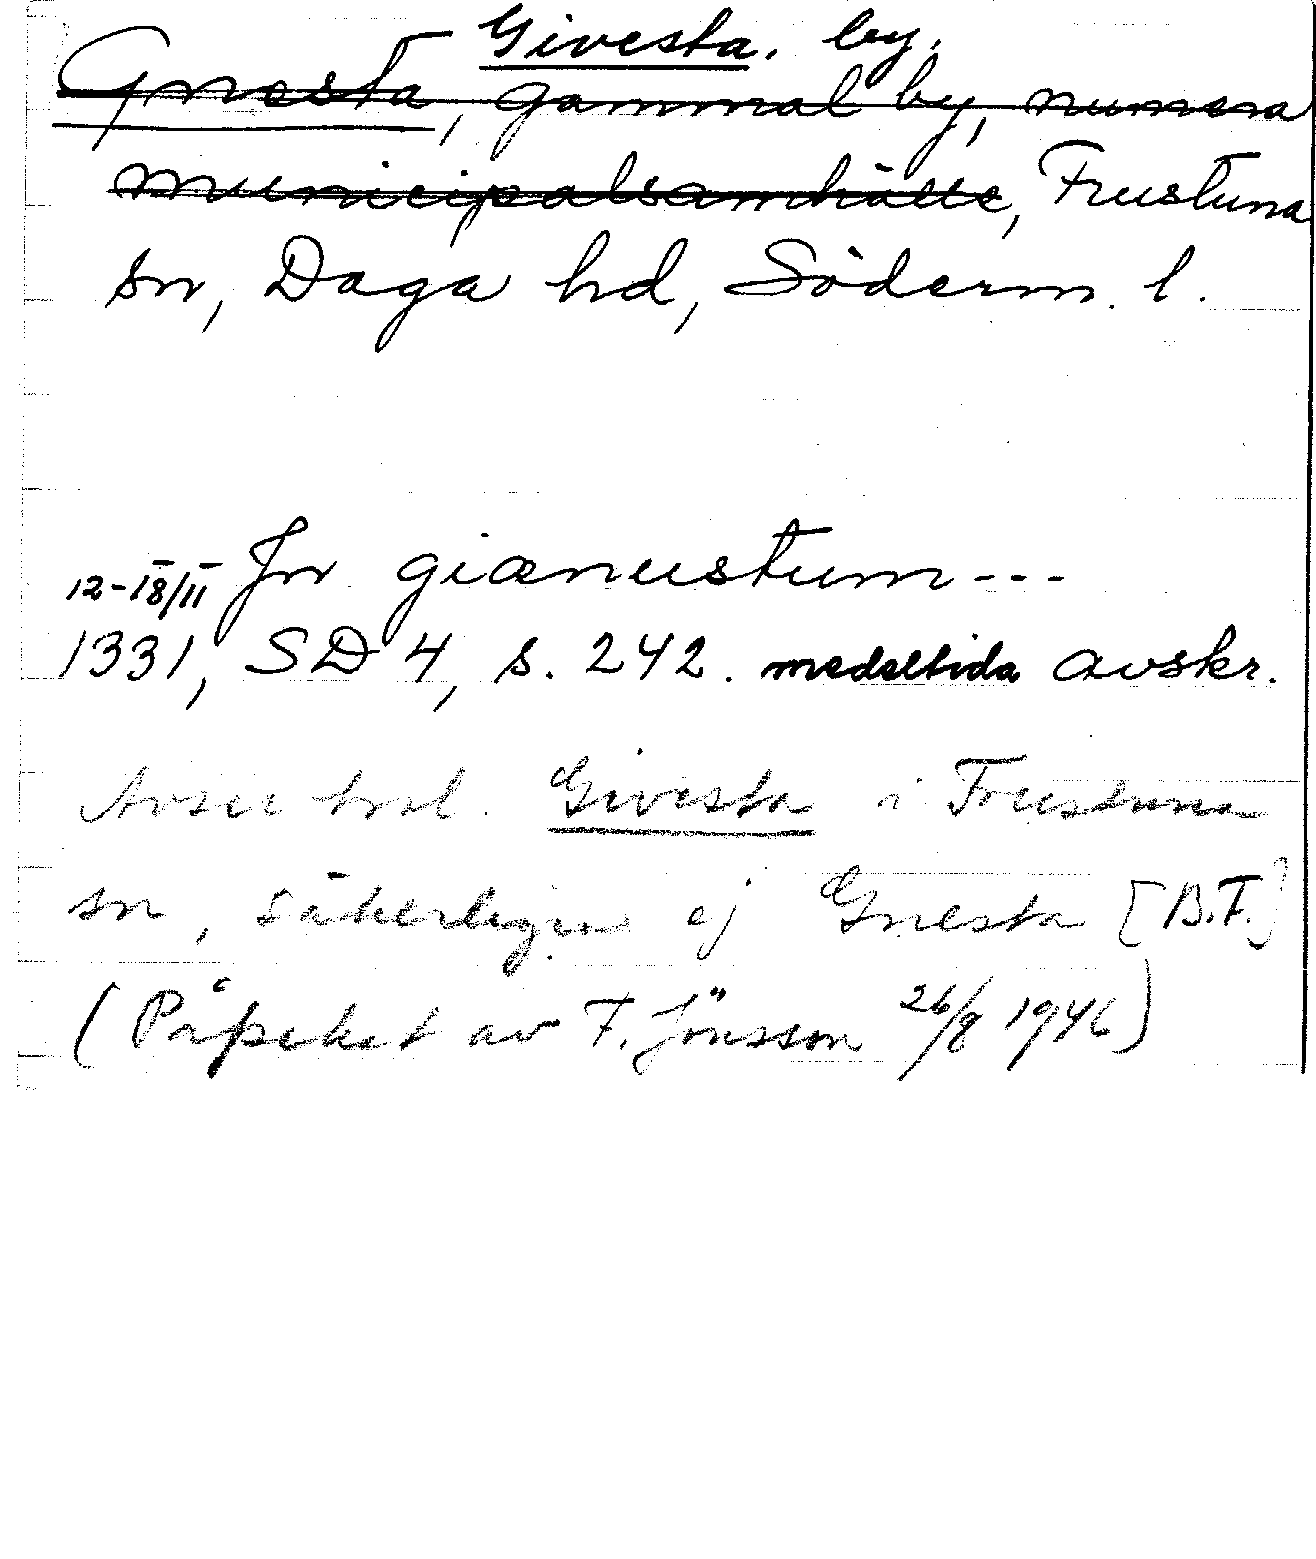 Givesta. by.
Gnesta, gammal by, numera
municipalsamhälle, Frustuna
sn, Daga hd, Söderm. l.
12-18/II Jn giæneustum---
1331, SD 4, s. 242. medeltida avskr.
Avser trol. Givesta i Frustuna
sn, säkerligen ej Gnesta [B.F.]
(Påpekat av F. Jönsson 26/8 1946)